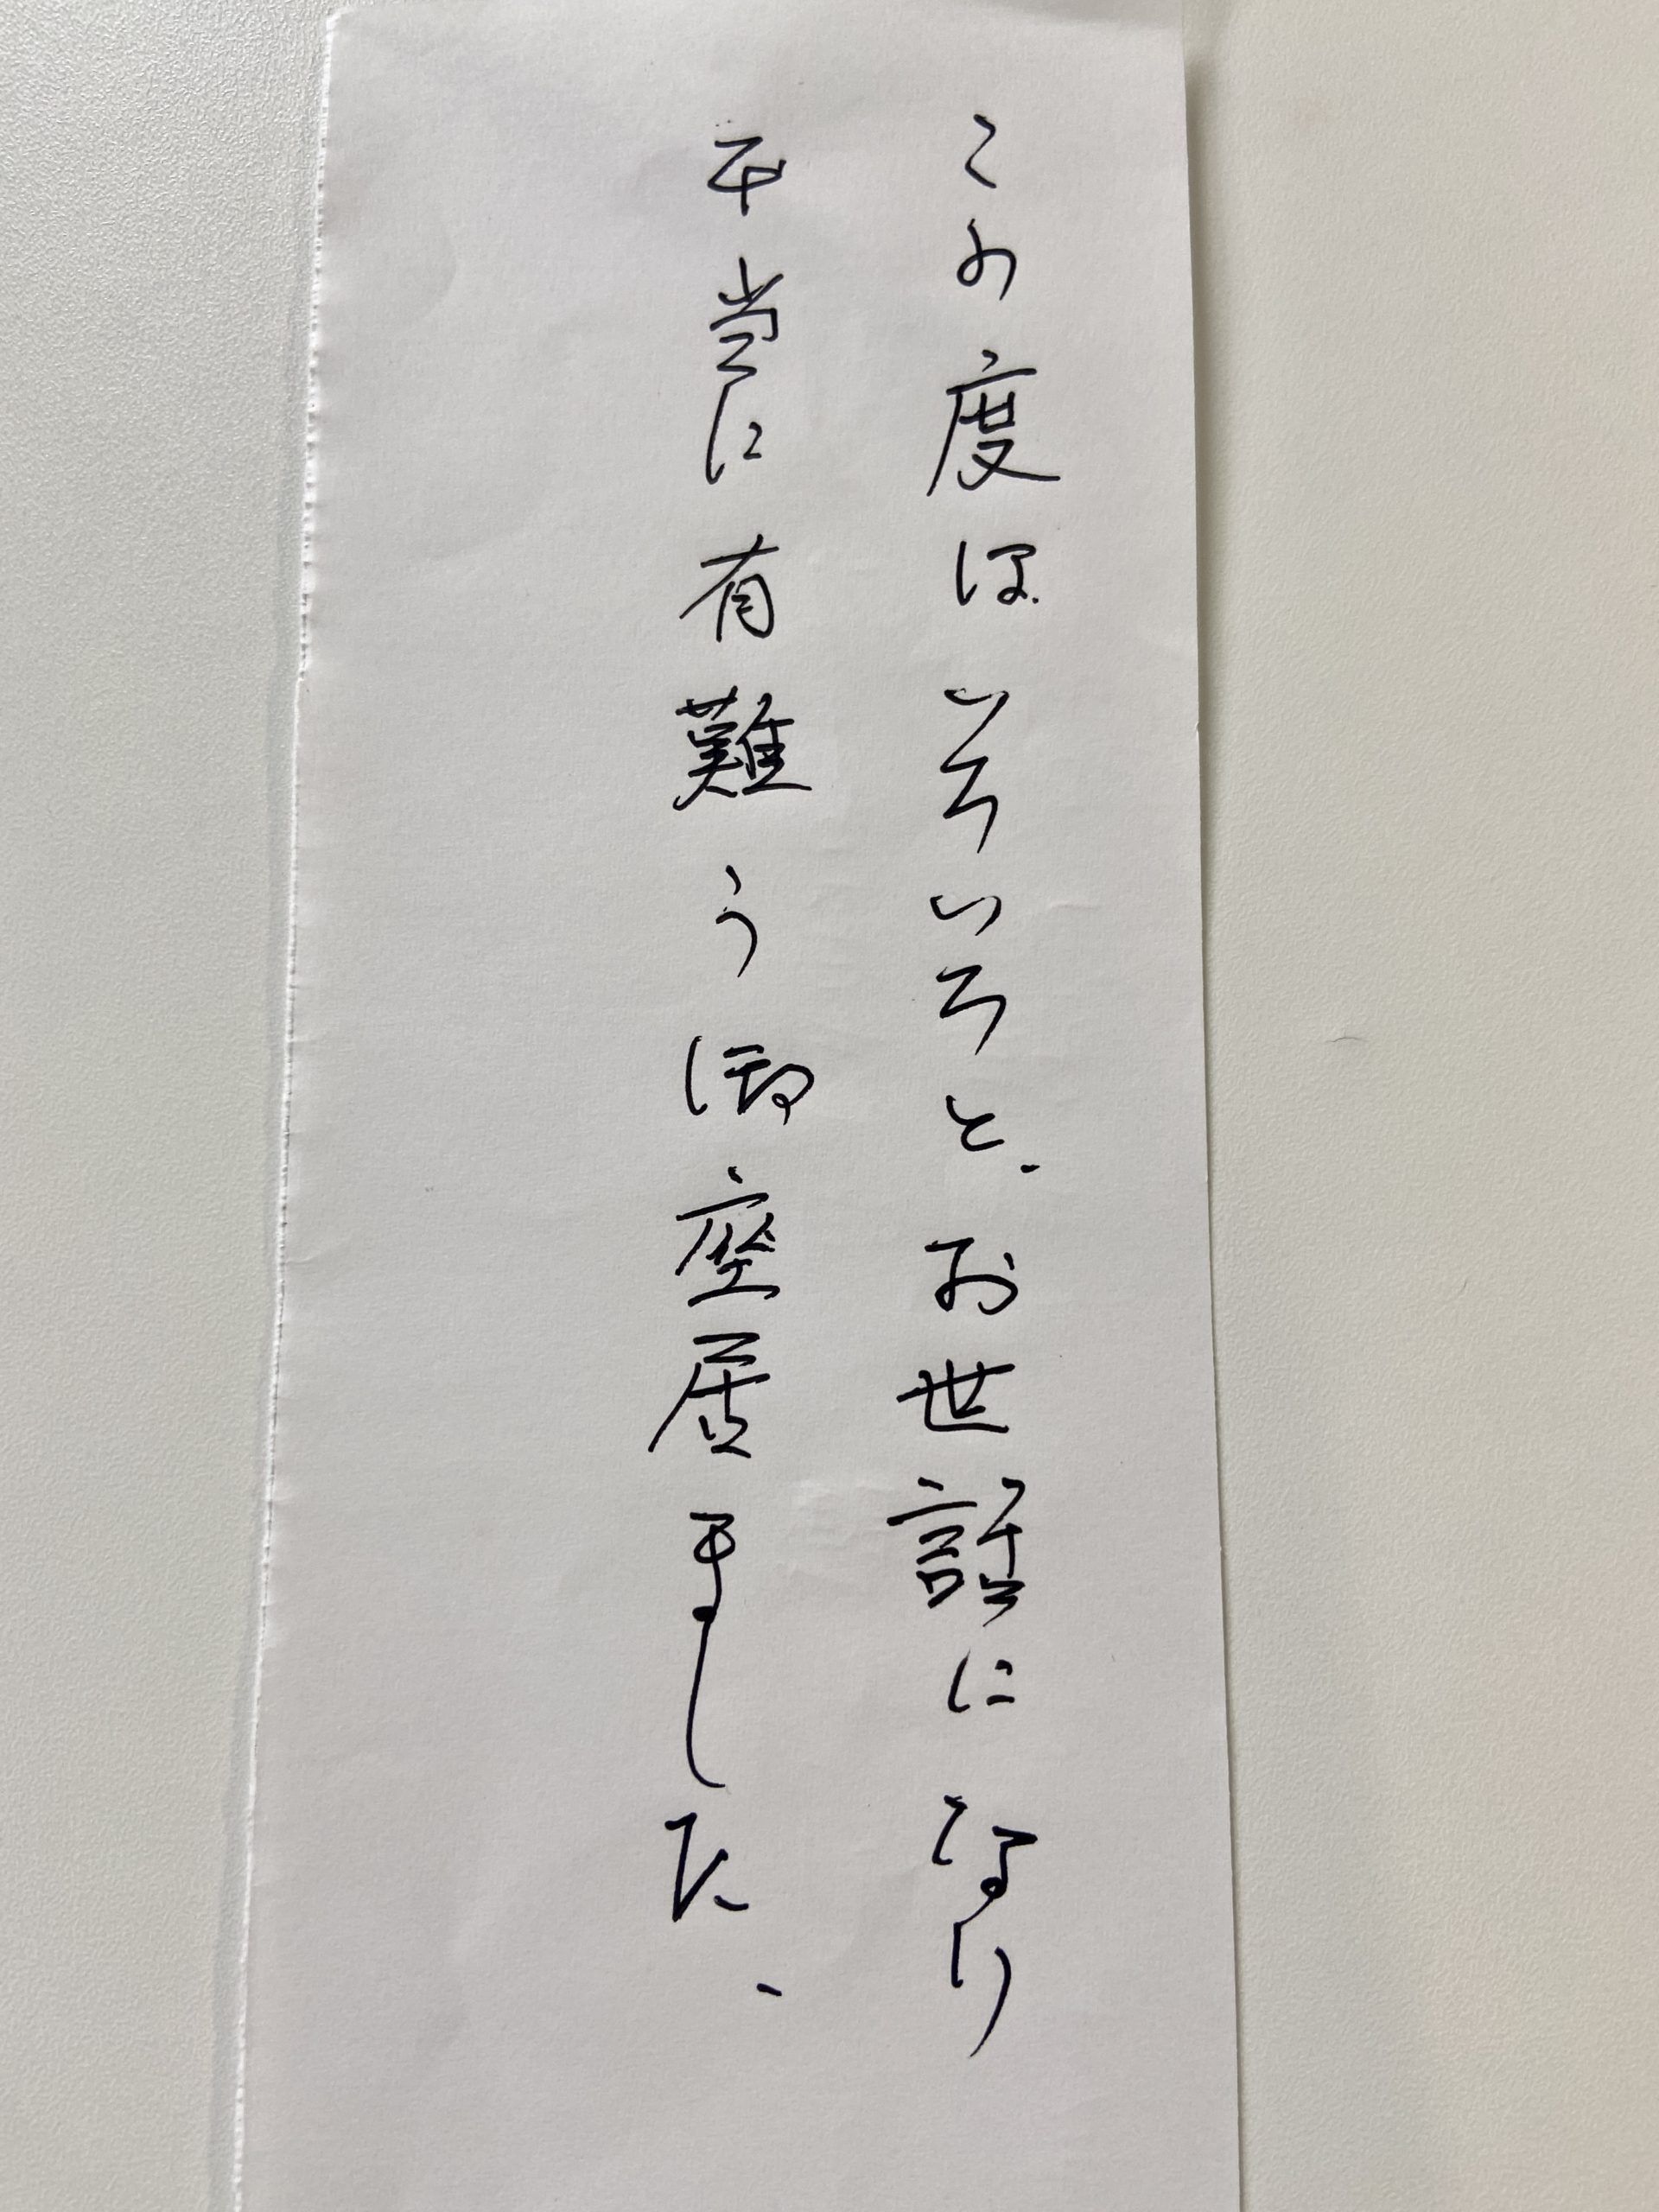 この度はいろいろと、お世話になり
本当に有難う御座居ました、